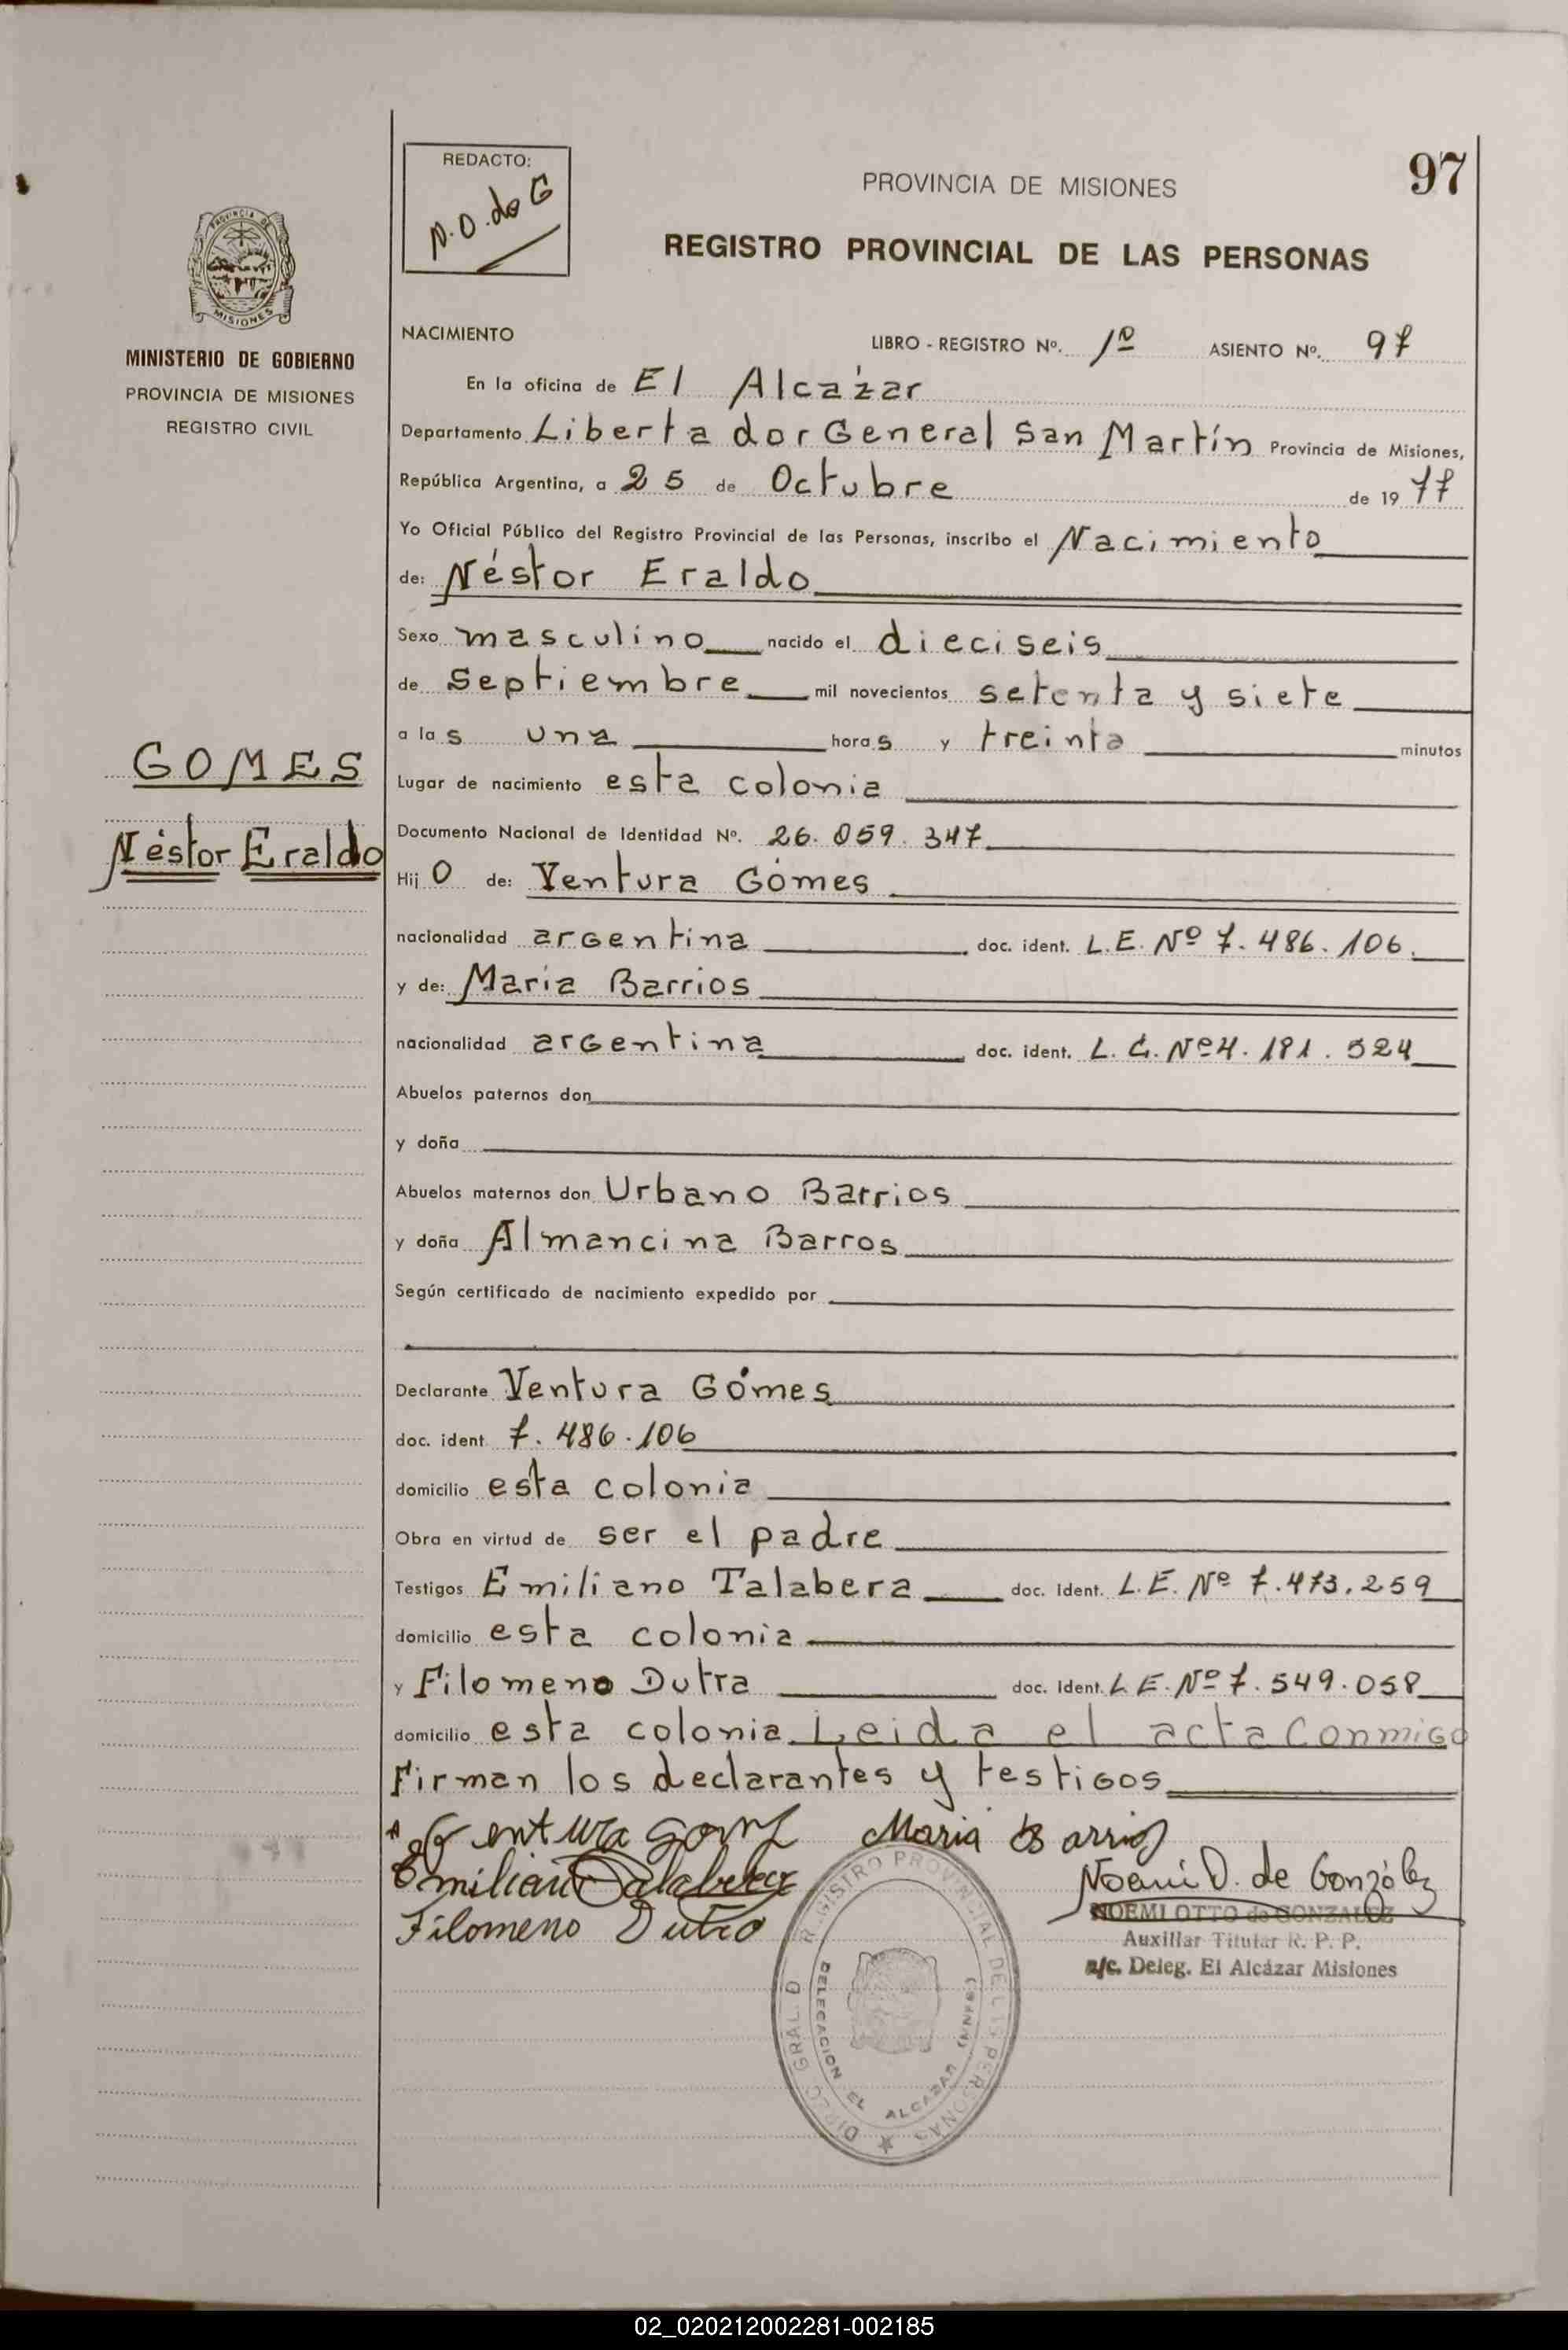 97
REDACTO:
N.O. de G
PROVINCIA DE MISIONES
REGISTRO PROVINCIAL DE LAS PERSONAS
PROVINCIA DE MISIONES
MINISTERIO DE GOBIERNO
PROVINCIA DE MISIONES
REGISTRO CIVIL
GOMES
Néstor Eraldo
NACIMIENTO LIBRO - REGISTRO Nº. 1º ASIENTO Nº. 97
En la oficina de El Alcázar
Departamento Libertador General San Martín Provincia de Misiones,
República Argentina, a 25 de Octubre de 1977
Yo Oficial Público del Registro Provincial de las Personas, inscribo el Nacimiento
de: Néstor Eraldo
Sexo masculino nacido el dieciseis
de Septiembre mil novecientos setenta y siete
a las una horas y treinta minutos
Lugar de nacimiento esta colonia
Documento Nacional de Identidad Nº. 26.059.347
Hijo de: Ventura Gómes
nacionalidad argentina doc. ident. L.E. Nº 7.486.106.
y de: Maria Barrios
nacionalidad argentina doc. ident. L.C. Nº 4.181.524
Abuelos paternos don
y doña
Abuelos maternos don Urbano Barrios
y doña Almancina Barros
Según certificado de nacimiento expedido por
Declarante Ventura Gómes
doc. ident. 7.486.106
domicilio esta colonia
Obra en virtud de ser el padre
Testigos Emiliano Talabera doc. Ident. L.E. Nº 7.473.259
domicilio esta colonia
y Filomeno Dutra doc. Ident. L.E. Nº 7.549.058
domicilio esta colonia. Leida el acta conmigo
Firman los declarantes y testigos
Ventura Gomz Maria Barrios
Emiliano Talabera Noemi O. de González
Filomeno Dutra
NOEMI OTTO de GONZALEZ
Auxiliar Titular R. P. P.
a/c. Deleg. El Alcázar Misiones
DIREC. GRAL. D. REGISTRO PROVINCIAL DE LAS PERSONAS
DELEGACION EL ALCAZAR (MNES)
02_020212002281-002185